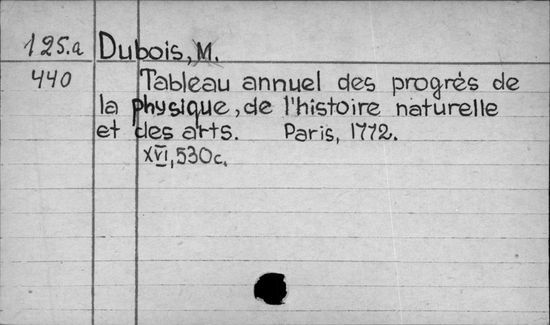 125.a Dubois, M.
440 Tableau annuel des progrès de
la physique, de l'histoire naturelle
et des arts. Paris, 1772.
XVI, 530c.